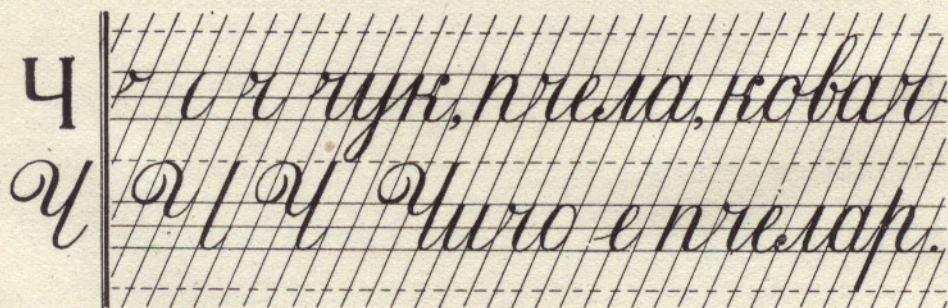 Ч ч ч чук, пчела, ковач
Ч Ч Ч Чичо е пчелар.